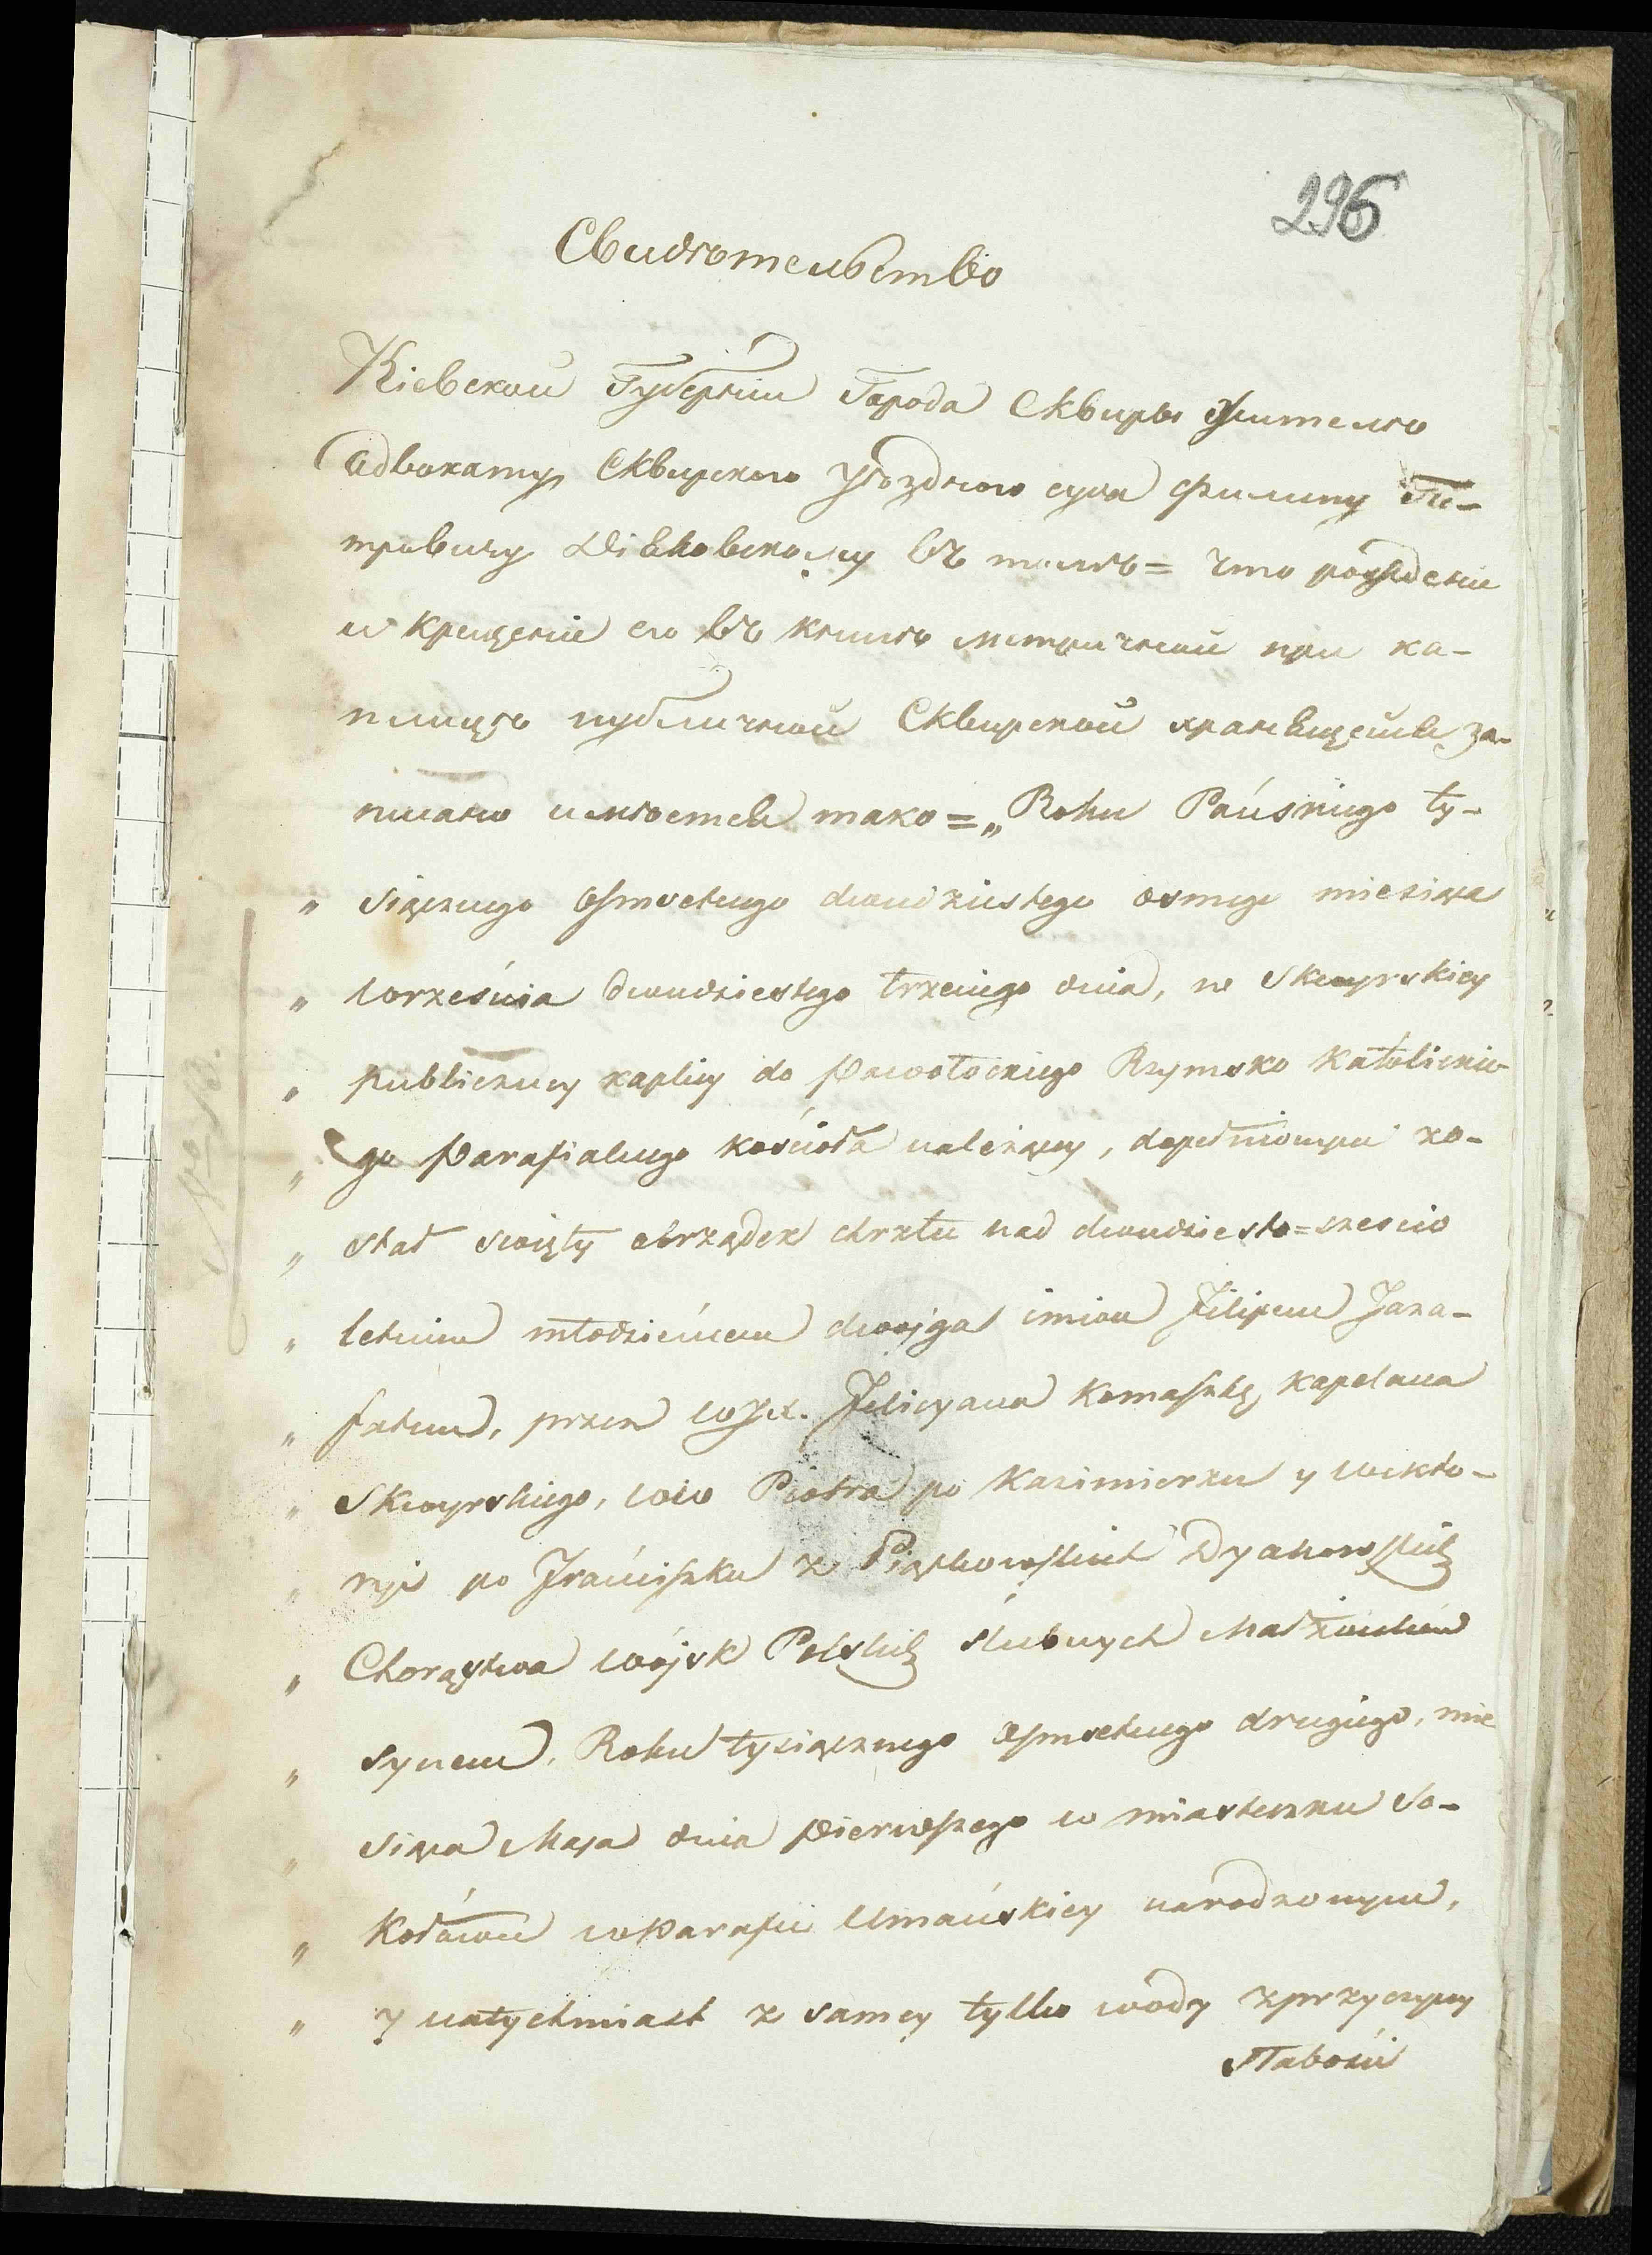 296
Свидѣтельство
Кіевской Губерніи Города Сквиры жителю
Адвокату Сквирского уѣздного суда Филипу Пе-
тровичу Діяковскому въ томъ = что рожденіе
и крещеніе его въ книгѣ метричной при ка-
плицѣ публичной Сквирской хранящейся за-
писано и мѣстея тако = „ Roku Pańskiego ty-
„ siącznego osmsetnego dwudziestego osmego miesiąca
„ września dwudziestego trzeciego dnia, w Skwyrskiey
„ publiczney kaplicy do Pawołockiego Rzymsko Katolickie-
„ go Parafialnego kościoła należącey, dopełnionym zo-
„ stał święty obrządek chrztu nad dwudziesto=sześcio
„ letnim młodzieńcem dwojga imion Filipem Joza-
„ fatem, przez WJX. Felicyana Komaszkę Kapelana
„ Skwyrskiego, WW Piotra po Kazimierzu y Wikto-
„ ryi po Franciszku z Piątkowskich Dyakowskich
„ Chorąstwa wójsk Polskich ślubnych Małżonków
„ synem, Roku tysiącznego osmsetnego drugiego, mie
„ siąca Maja dnia pierwszego w miasteczku So-
„ kołówce w Parafii Umańskiey narodzonym,
„ y natychmiast z samey tylko wody z przyczyny
słabości